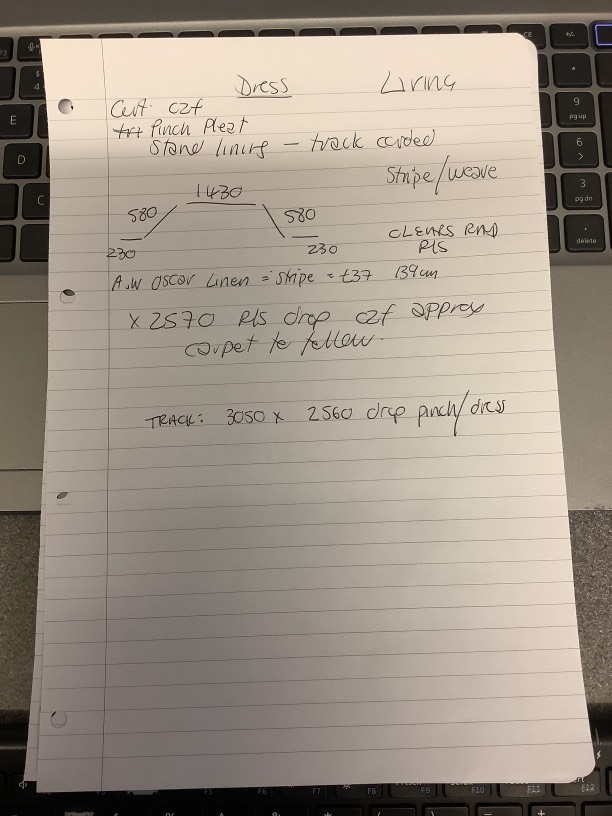 Dress Living
Curt. c2f
Pinch Pleat
Stand lining - track corded
Stripe/weave
1430
580 580
230 230
CLEARS RAD
PLS
A.W OSCAR Linen = Stripe = £37 139cm
x 2570 PLS drop c2f approx
carpet to follow.
TRACK: 3050 x 2560 drop pinch/dress
E
D
C
$
4
CE
+/-
*
9
pg up
6
>
3
pg dn
.
delete
F5 F6 F7 F8 F9 F10 F11 F12